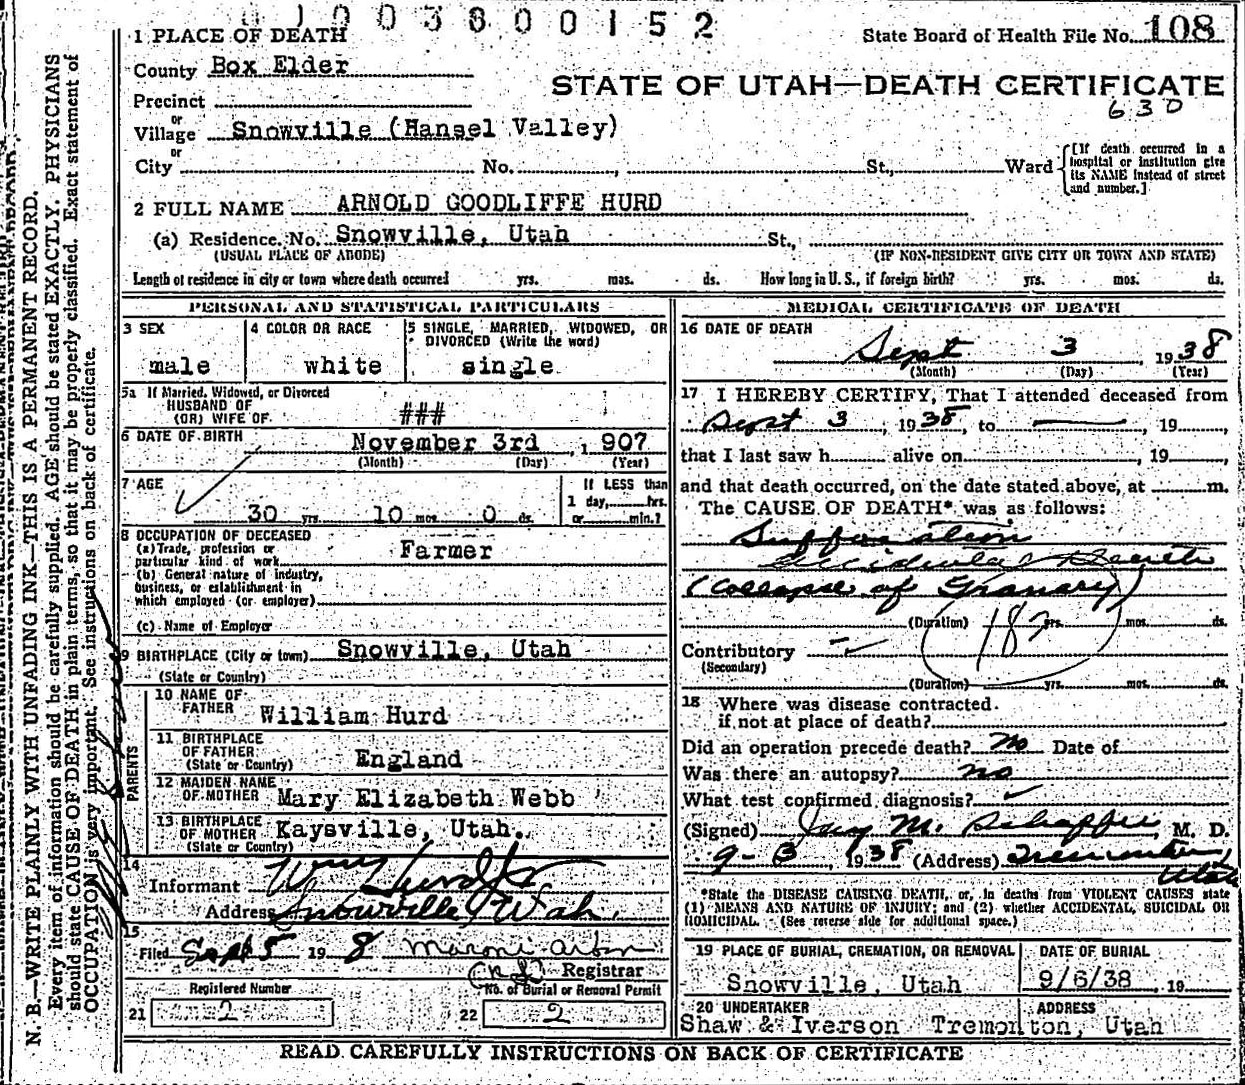 01003600152
1 PLACE OF DEATH
State Board of Health File No. 108
County Box Elder
STATE OF UTAH—DEATH CERTIFICATE
630
Precinct
or
Village Snowville (Hansel Valley)
or
City No. , St., Ward
[If death occurred in a hospital or institution give its NAME instead of street and number.]
2 FULL NAME ARNOLD GOODLIFFE HURD
(a) Residence. No. Snowville, Utah St.,
(USUAL PLACE OF ABODE) (IF NON-RESIDENT GIVE CITY OR TOWN AND STATE)
Length of residence in city or town where death occurred yrs. mos. ds. How long in U. S., if foreign birth? yrs. mos. ds.
PERSONAL AND STATISTICAL PARTICULARS
3 SEX
male
4 COLOR OR RACE
white
5 SINGLE, MARRIED, WIDOWED, OR DIVORCED (Write the word)
single
5a If Married, Widowed, or Divorced
HUSBAND OF
(OR) WIFE OF ###
6 DATE OF BIRTH
November 3rd , 1907
(Month) (Day) (Year)
7 AGE
30 yrs. 10 mos. 0 ds.
If LESS than
1 day, hrs.
or min.?
8 OCCUPATION OF DECEASED
(a) Trade, profession or
particular kind of work Farmer
(b) General nature of industry,
business, or establishment in
which employed (or employer)
(c) Name of Employer
9 BIRTHPLACE (City or town) Snowville, Utah
(State or Country)
PARENTS
10 NAME OF
FATHER William Hurd
11 BIRTHPLACE
OF FATHER
(State or Country) England
12 MAIDEN NAME
OF MOTHER Mary Elizabeth Webb
13 BIRTHPLACE
OF MOTHER Kaysville, Utah.
(State or Country)
14
Informant Wm Hurd
Address Snowville, Utah.
15
Filed Sept 5 19 8
Registrar
Registered Number
21 2
No. of Burial or Removal Permit
22 2
MEDICAL CERTIFICATE OF DEATH
16 DATE OF DEATH
Sept 3 , 1938
(Month) (Day) (Year)
17 I HEREBY CERTIFY, That I attended deceased from
Sept 3 , 1938, to — , 19 ,
that I last saw h alive on , 19 ,
and that death occurred, on the date stated above, at m.
The CAUSE OF DEATH* was as follows:
Suffocation
Accidental Death
(Collapse of Granary)
(Duration) yrs. mos. ds.
182
Contributory
(Secondary)
(Duration) yrs. mos. ds.
18 Where was disease contracted
if not at place of death?
Did an operation precede death? No Date of
Was there an autopsy? no
What test confirmed diagnosis?
(Signed) Jay M. Schaffer, M. D.
9-3 , 1938 (Address) Tremonton,
Utah
*State the DISEASE CAUSING DEATH, or, in deaths from VIOLENT CAUSES state
(1) MEANS AND NATURE OF INJURY; and (2) whether ACCIDENTAL, SUICIDAL OR
HOMICIDAL. (See reverse side for additional space.)
19 PLACE OF BURIAL, CREMATION, OR REMOVAL
Snowville, Utah
DATE OF BURIAL
9/6/38 , 19
20 UNDERTAKER ADDRESS
Shaw & Iverson Tremonton, Utah
READ CAREFULLY INSTRUCTIONS ON BACK OF CERTIFICATE
N. B.—WRITE PLAINLY WITH UNFADING INK—THIS IS A PERMANENT RECORD.
Every item of information should be carefully supplied. AGE should be stated EXACTLY. PHYSICIANS
should state CAUSE OF DEATH in plain terms, so that it may be properly classified. Exact statement of
OCCUPATION is very important. See instructions on back of certificate.